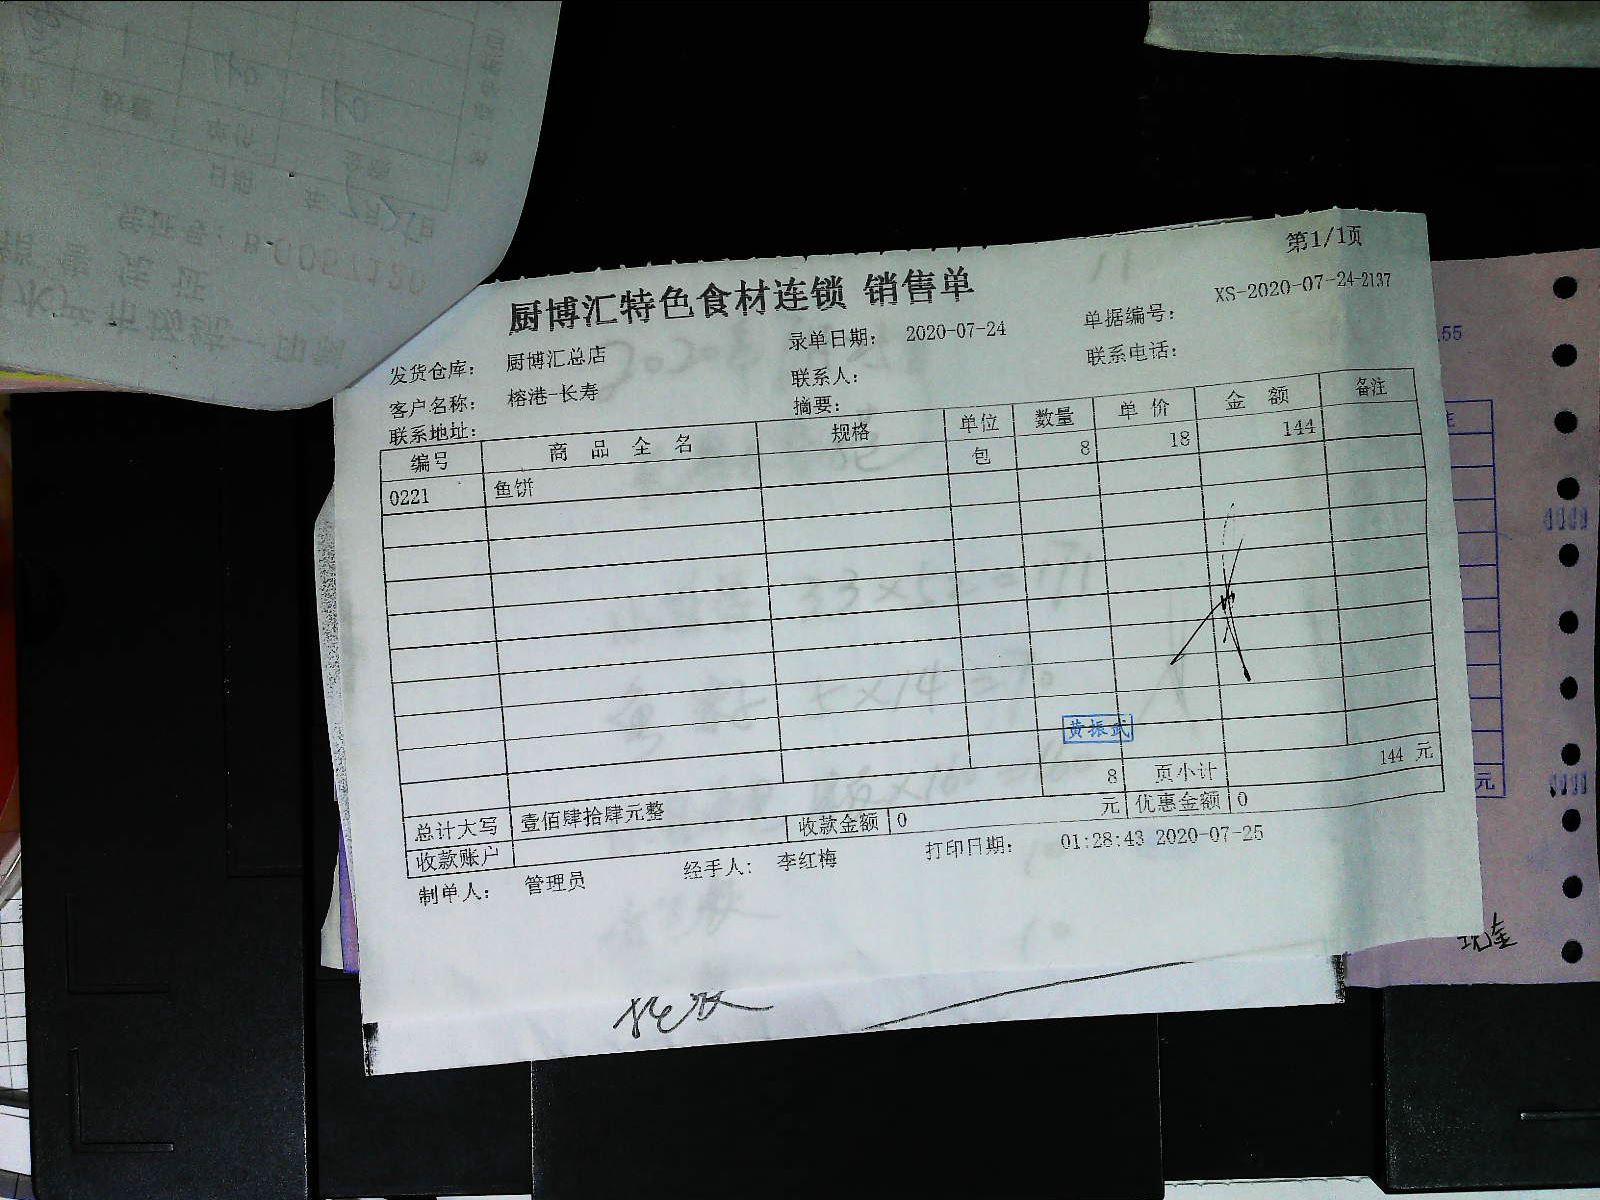 第1/1页
厨博汇特色食材连锁 销售单
发货仓库： 厨博汇总店 录单日期： 2020-07-24 单据编号： XS-2020-07-24-2137
客户名称： 榕港-长寿 联系人： 联系电话：
联系地址： 摘要：
编号 商品全名 规格 单位 数量 单价 金额 备注
0221 鱼饼 包 8 18 144
黄振武
8 页小计 144 元
总计大写 壹佰肆拾肆元整 收款金额 0 元 优惠金额 0
收款账户
制单人： 管理员 经手人： 李红梅 打印日期： 01:28:43 2020-07-25
.55
元
现金